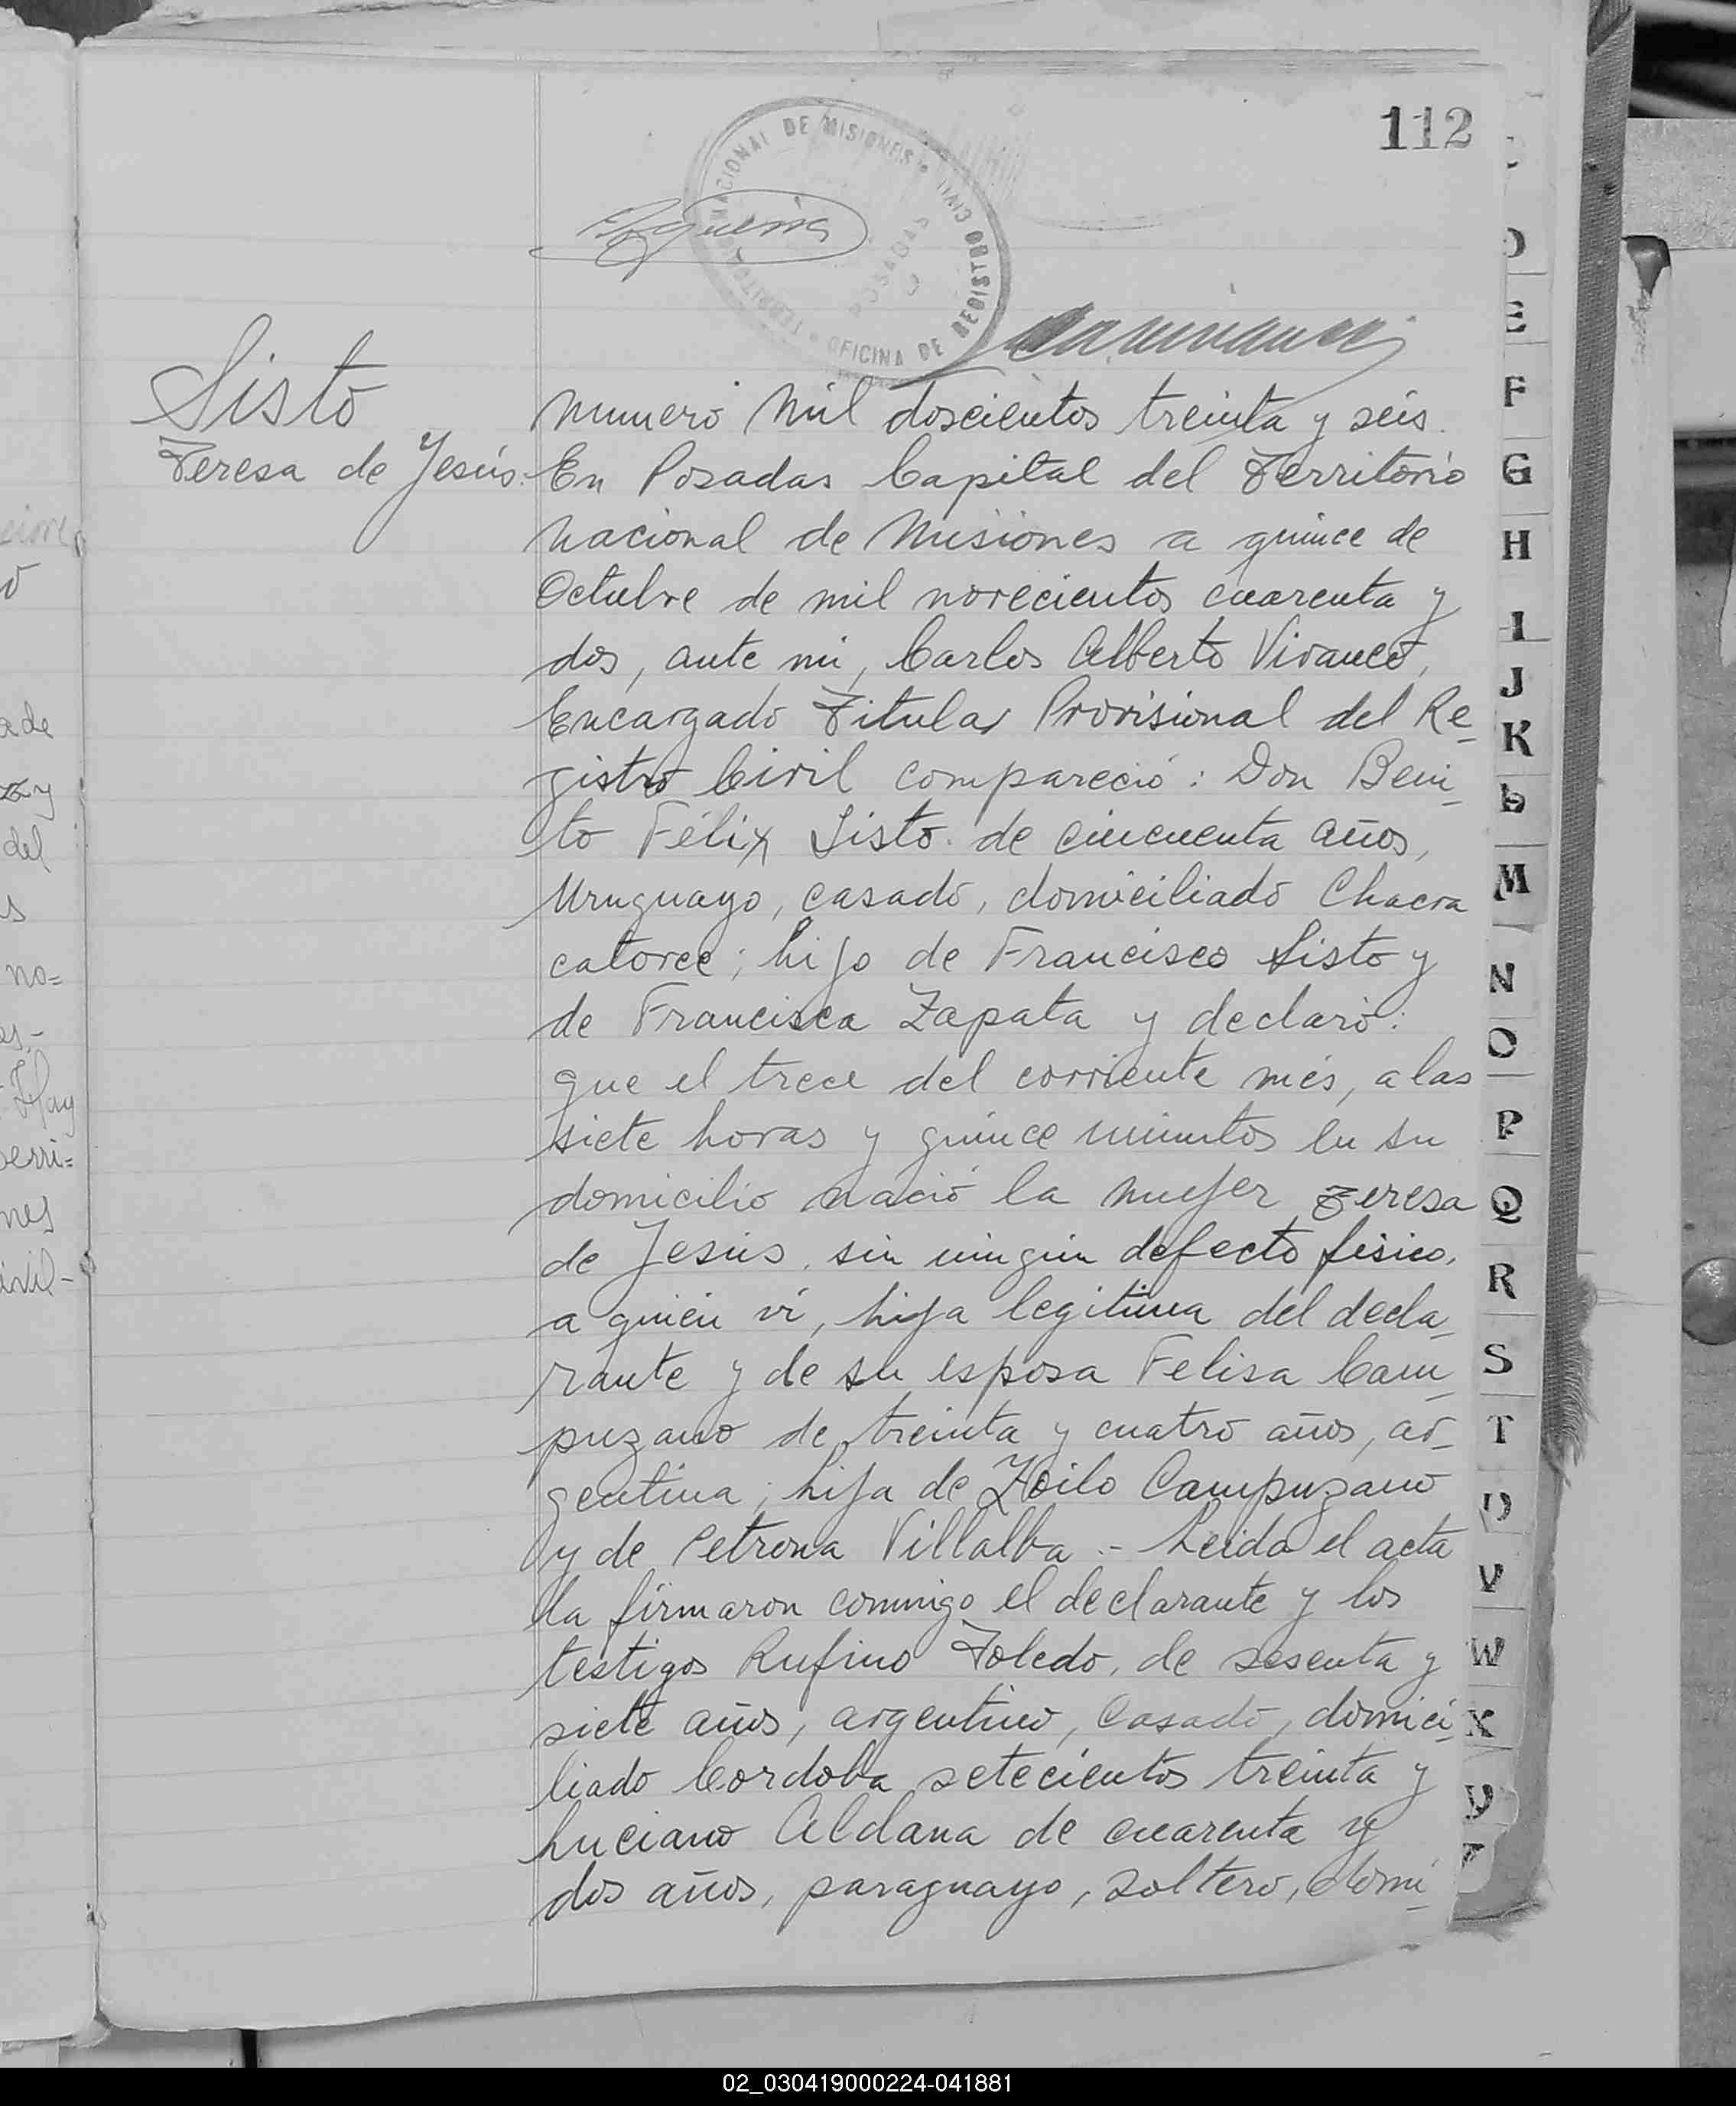 112
TERRITORIO NACIONAL DE MISIONES • OFICINA DE REGISTRO CIVIL •
POSADAS
Sisto
Teresa de Jesús.
Numero mil doscientos treinta y seis.
En Posadas Capital del Territorio
Nacional de Misiones a quince de
Octubre de mil novecientos cuarenta y
dos, ante mi, Carlos Alberto Vivanco,
Encargado Titular Provisional del Re-
gistro Civil compareció: Don Beni-
to Félix Sisto de cincuenta años,
Uruguayo, casado, domiciliado Chacra
catorce; hijo de Francisco Sisto y
de Francisca Zapata y declaró:
que el trece del corriente més, a las
siete horas y quince minutos en su
domicilio nació la mujer Teresa
de Jesús, sin ningún defecto físico,
a quién ví, hija legitima del decla-
rante y de su esposa Felisa Cam-
puzano de treinta y cuatro años, ar-
gentina; hija de Zoilo Campuzano
y de Petrona Villalba.- Leida el acta
la firmaron conmigo el declarante y los
testigos Rufino Toledo, de sesenta y
siete años, argentino, casado, domici-
liado Cordoba setecientos treinta y
Luciano Aldana de cuarenta y
dos años, paraguayo, soltero, domi-
D
E
F
G
H
I
J
K
L
M
N
O
P
Q
R
S
T
U
V
W
X
Y
Z
ade
del
s
no=
es.-
Hay
nes
02_030419000224-041881